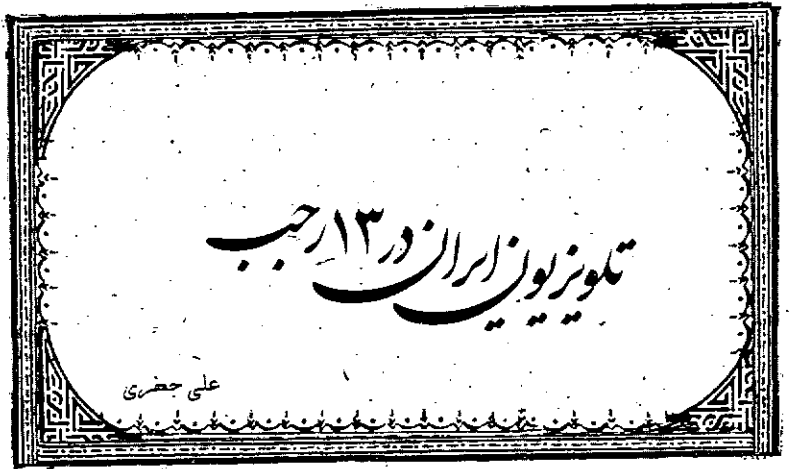 تلویزیون ایران در ۱۳ رجب
علی جعفری